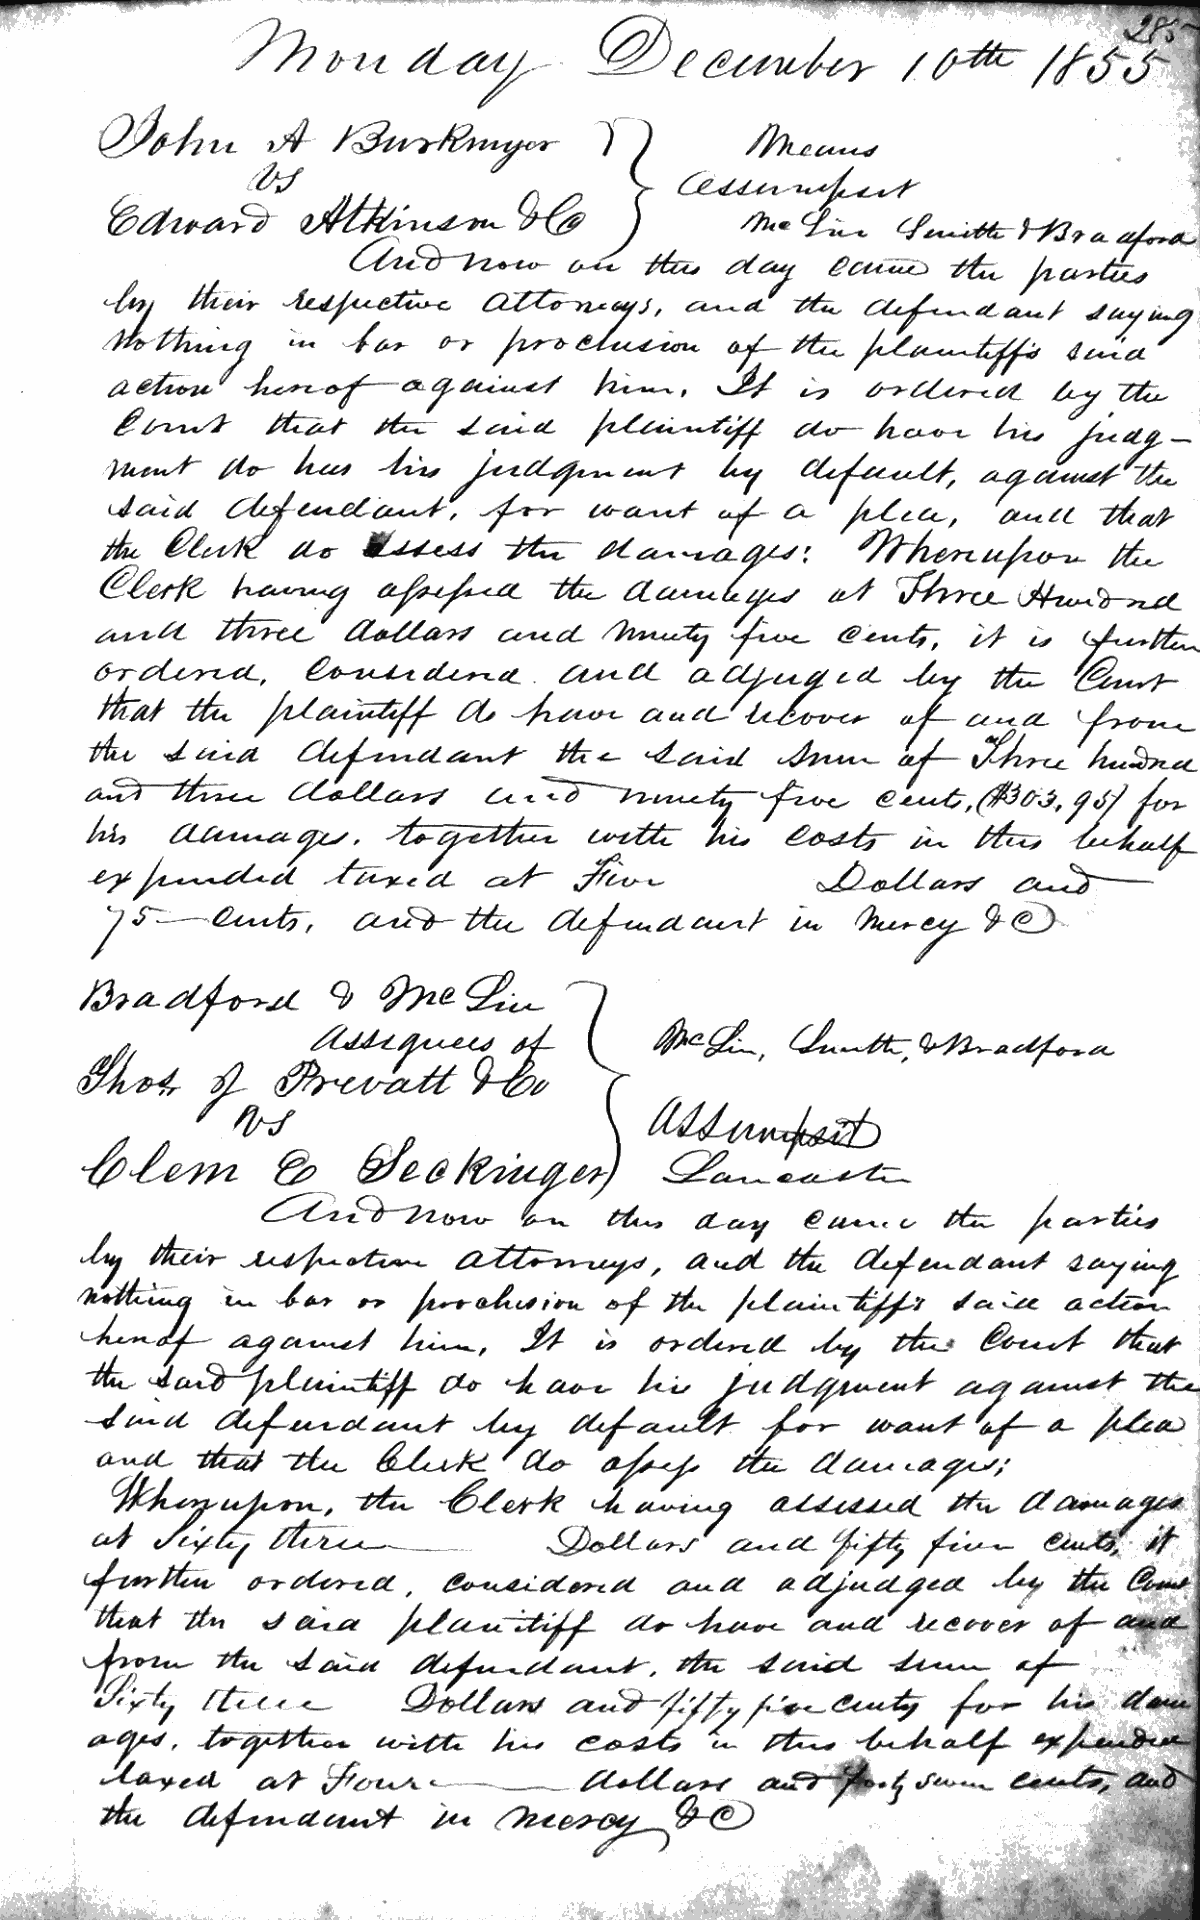 285
Monday December 10th 1855
John A Burkmyer Means
vs Assumpsit
Edward Atkinson & Co McLin Smith & Bradford
And now on this day came the parties
by their respective attorneys, and the defendant saying
nothing in bar or proclusion of the plaintiffs said
action hereof against him. It is ordered by the
Court that the said plaintiff do have his judg-
ment do has his judgment by default, against the
said defendant, for want of a plea, and that
the Clerk do assess the damages: Whereupon the
Clerk having assessed the damages at Three Hundred
and three dollars and ninety five cents, it is further
ordered, considered and adjuged by the Court
that the plaintiff do have and recover of and from
the said defendant the said sum of Three hundred
and three dollars and ninety five cents, ($303,95) for
his damages. together with his costs in this behalf
expended taxed at Five Dollars and
75 cents, and the defendant in mercy &c
Bradford & McLin
Assignees of McLin, Smith, & Bradford
Thos. J Prevatt & Co
vs Assumpsit
Clem C Seckinger Lancaster
And now on this day came the parties
by their respective attorneys, and the defendant saying
nothing in bar or proclusion of the plaintiff's said action
hereof against him. It is ordered by the Court that
the said plaintiff do have his judgment against the
said defendant by default for want of a plea
and that the Clerk do assess the damages;
Whereupon, the Clerk having assessed the damages
at Sixty three Dollars and fifty five cents, it
further ordered, considered and adjudged by the Court
that the said plaintiff do have and recover of and
from the said defendant, the said sum of
Sixty three Dollars and fifty five cents for his dam
ages, together with his costs in this behalf expended
taxed at Four dollars and forty seven cents, and
the defendant in mercy &c